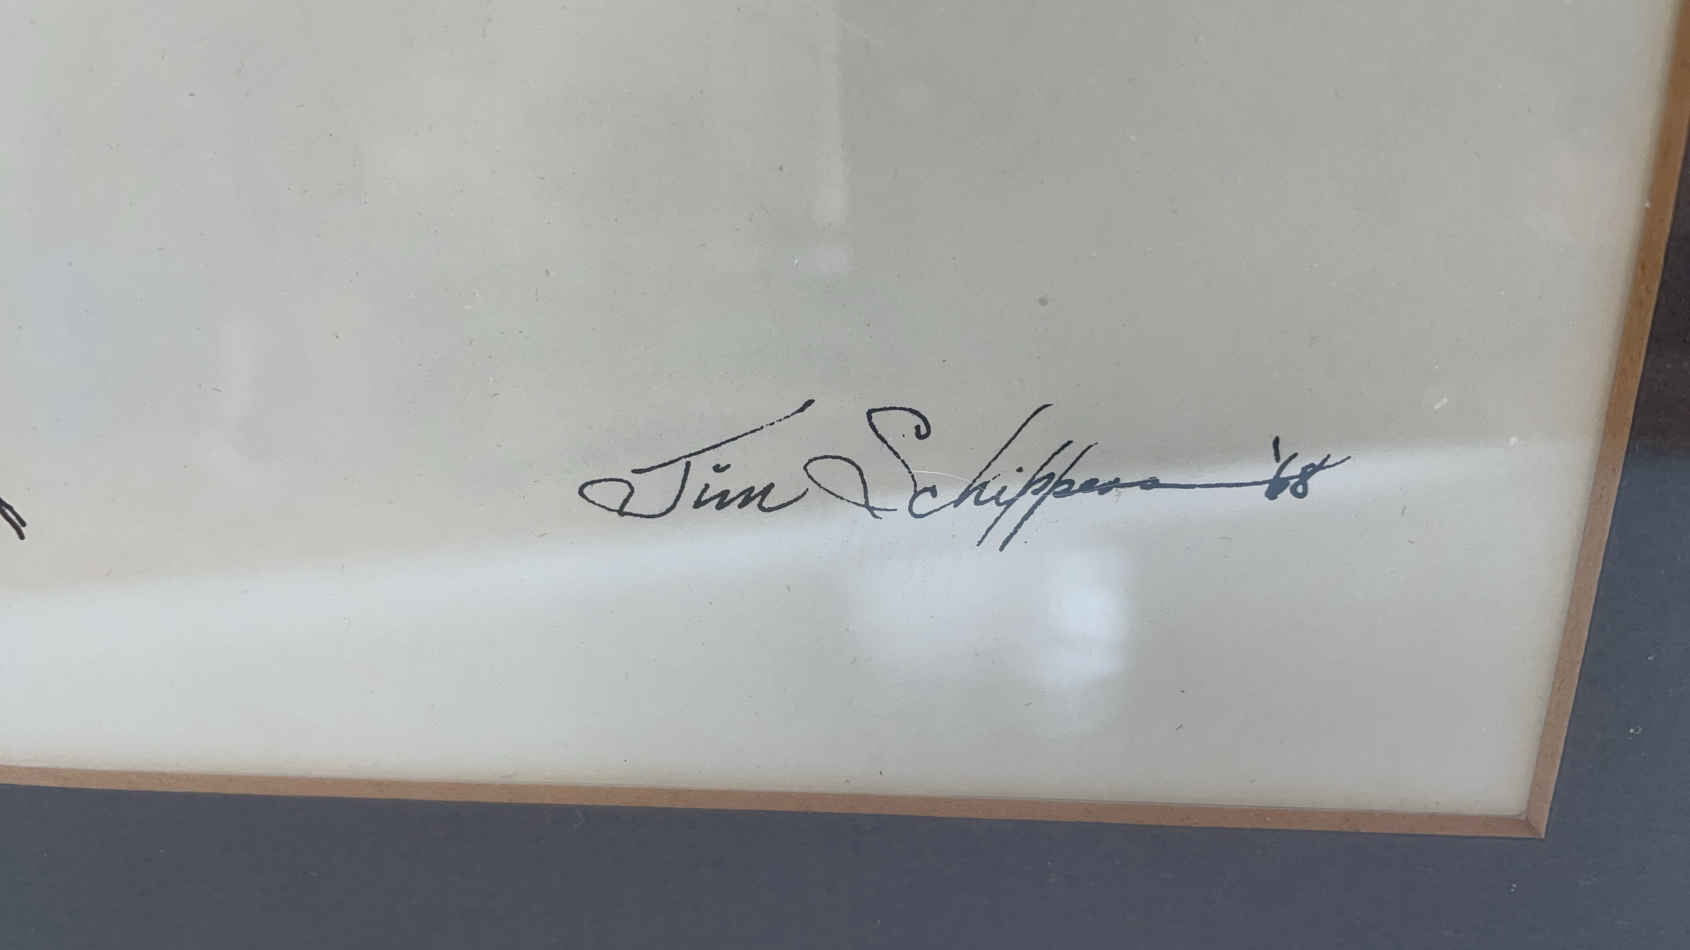 Jim Schippers '68